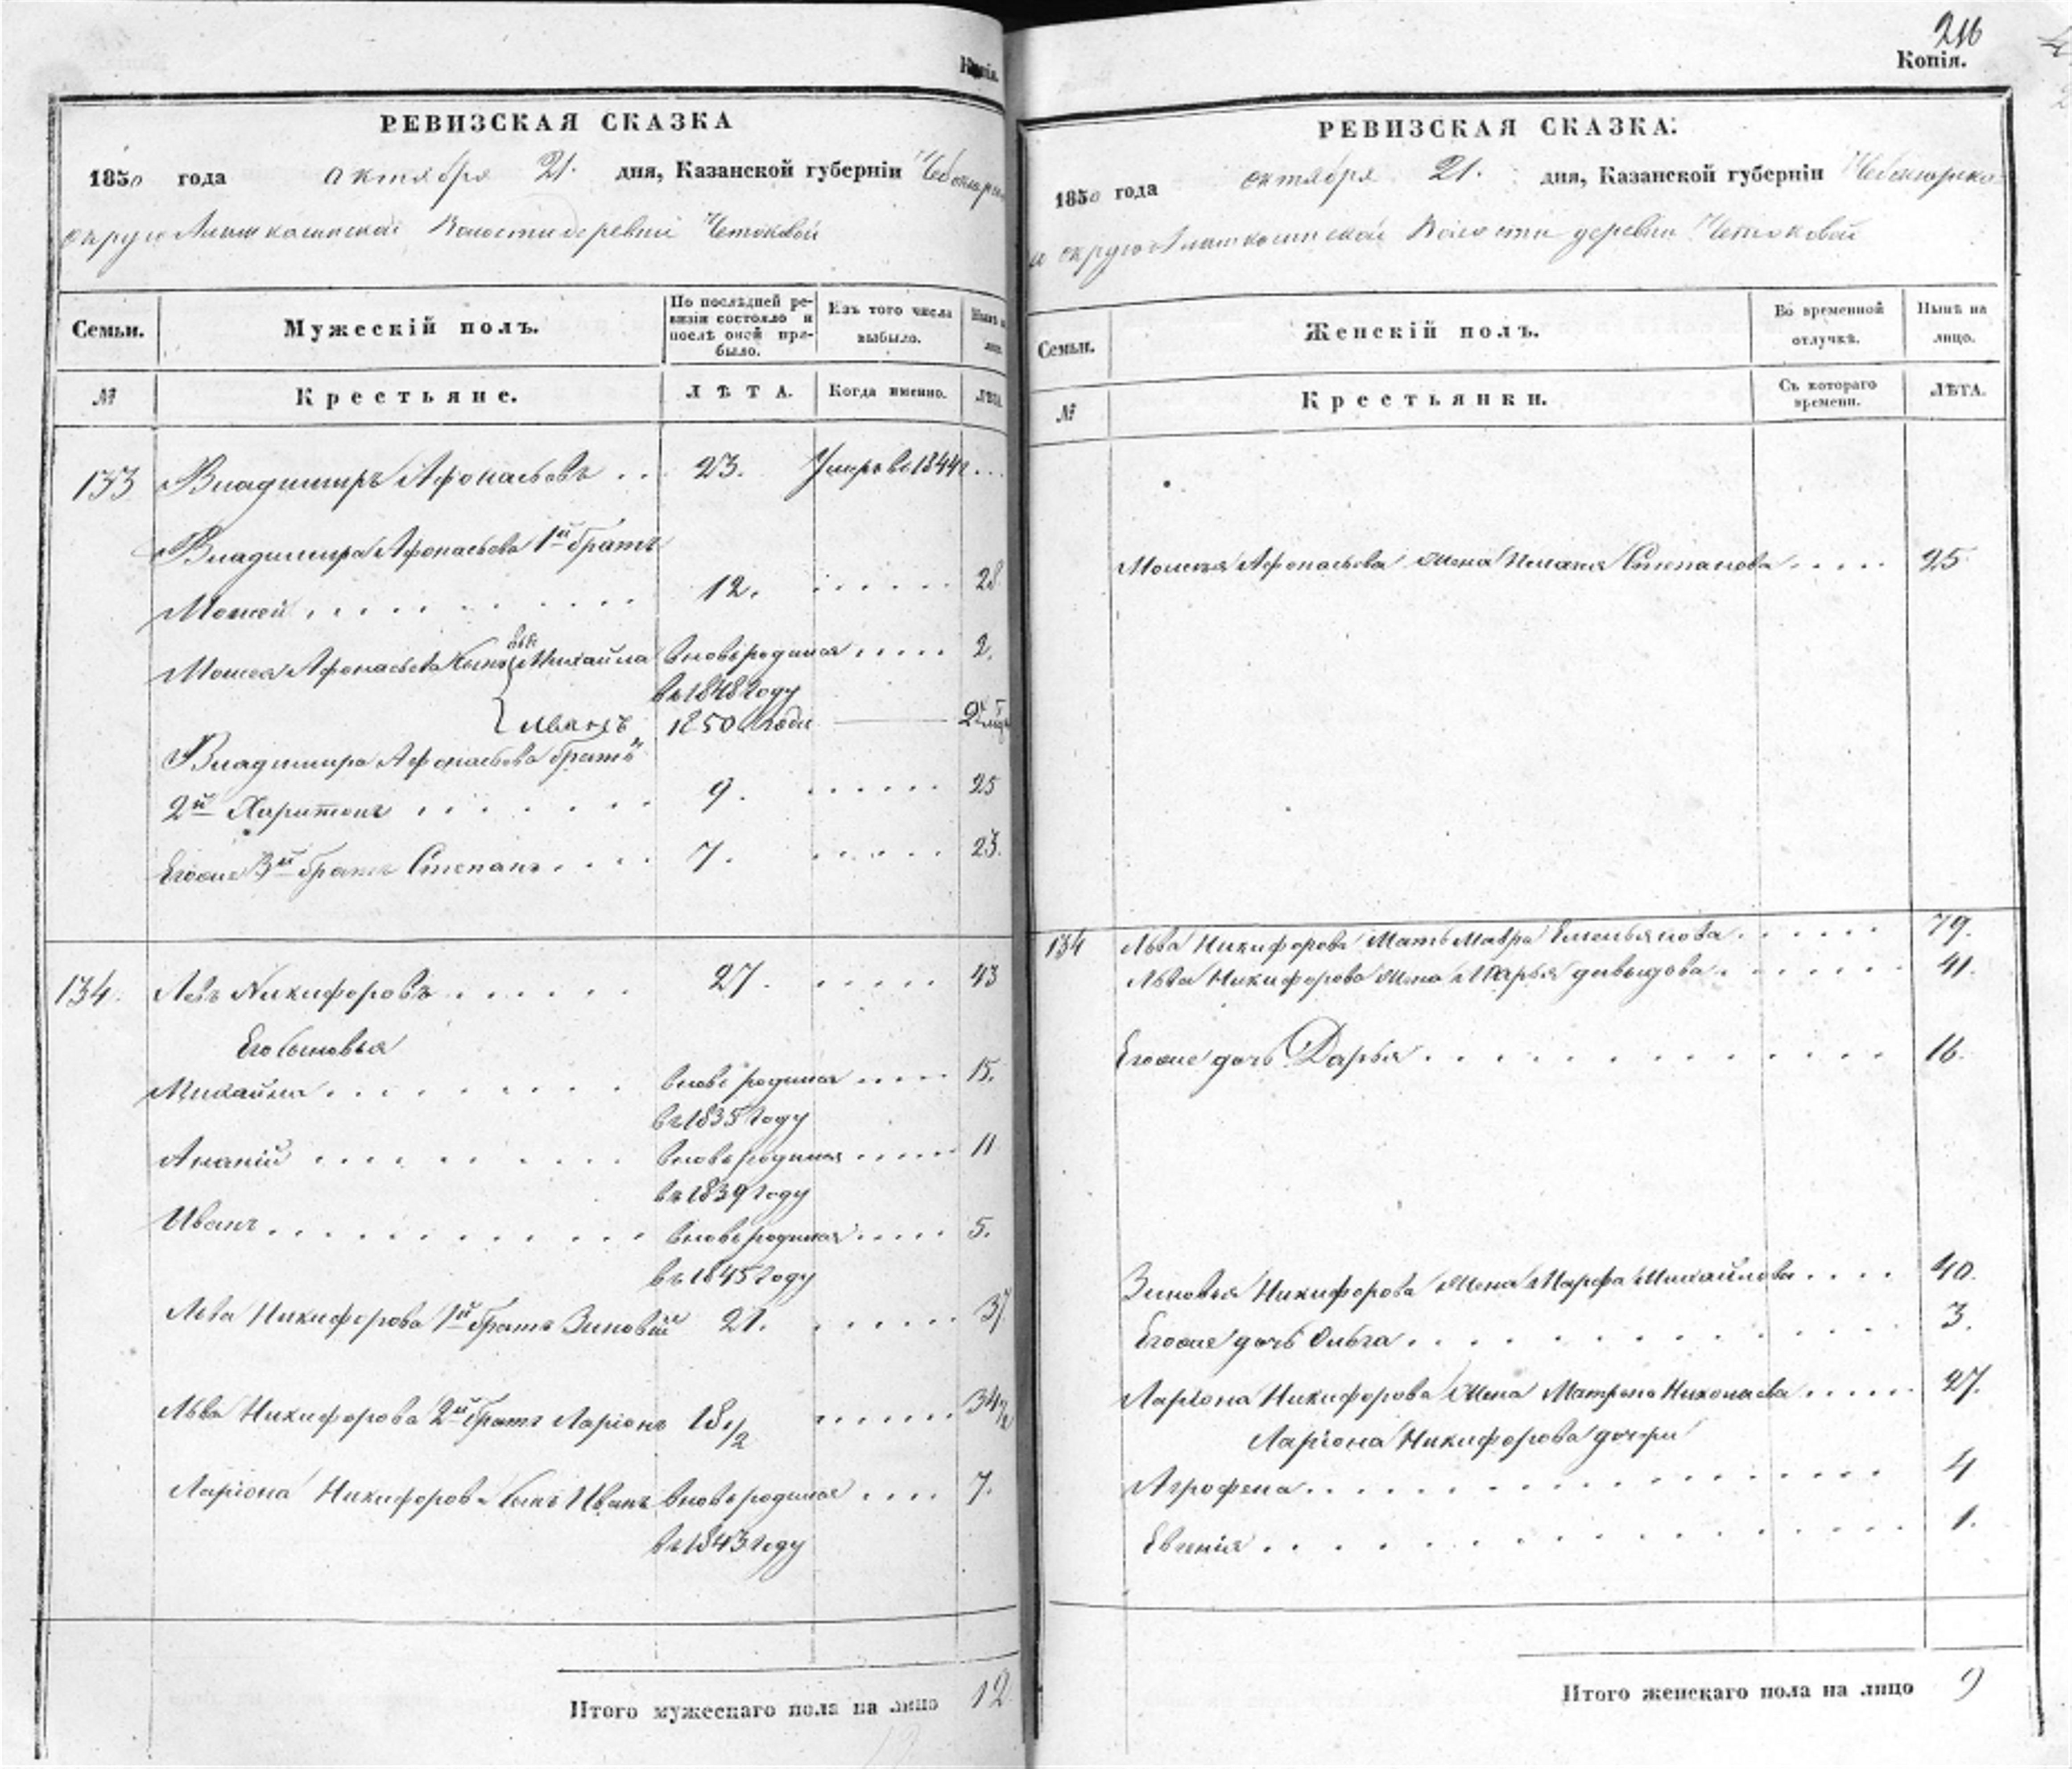 Копія.
РЕВИЗСКАЯ СКАЗКА
1850 года октября 21. дня, Казанской губерніи
округа Волости деревни
Семьи.
Мужескій полъ.
По послѣдней ревизіи состояло и послѣ оной прибыло.
Изъ того числа выбыло.
Нынѣ на лицо.
№
Крестьяне.
ЛѢТА.
Когда именно.
ЛѢТА.
133 Владимиръ Афонасьевъ . . 23. Умеръ въ 1844 г . . .
Владимира Афонасьева 1й братъ
Мосей . . . . . . 12. . . . . . . 28
Мосея Афонасьева сыновья Михайла вновьродился . . . . . 2.
въ 1848 году
Иванъ 1850 года
Владимира Афонасьева братъ
2й Харитонъ . . . . . . 9. . . . . . . 25
Егоже 3й братъ Степанъ . . . . 7. . . . . . . 23.
134. Левъ Никифоровъ . . . . . . 27. . . . . . 43
Его сыновья
Михайла . . . . . . . . вновь родился . . . . . 15.
въ 1835 году
Ананій . . . . . . . . . вновь родился . . . . . 11
въ 1839 году
Иванъ . . . . . . . . . . вновь родился . . . . . 5.
въ 1845 году
Льва Никифорова 1й братъ Зиновій 21. . . . . . . 37.
Льва Никифорова 2й братъ Ларіонъ 18 1/2 . . . . . . 34 1/2
Ларіона Никифорова сынъ Иванъ вновьродился . . . . 7.
въ 1843 году
Итого мужескаго пола на лицо 12
216
Копія.
РЕВИЗСКАЯ СКАЗКА.
1850 года октября 21. дня, Казанской губерніи Чебоксарска
округа Волости деревни
Семьи.
Женскій полъ.
Во временной отлучкѣ.
Нынѣ на лицо.
№
Крестьянки.
Съ котораго времени.
ЛѢТА.
Мосея Афонасьева жена Степанова . . . . . 25
134 Льва Никифорова Мать Мавра Емельянова . . . . . . 79.
Льва Никифорова жена Марья давыдова . . . . . . . 41.
Егоже дочь Дарья . . . . . . . . . . . . 16.
Зиновья Никифорова жена Марфа Михайлова . . . . 40.
Егоже дочь Ольга . . . . . . . . . . 3.
Ларіона Никифорова жена Матрена Николаева . . . . . 27.
Ларіона Никифорова дочери
Агрофена . . . . . . . . . . . . . 4
Евгенія . . . . . . . . . . . . . 1.
Итого женскаго пола на лицо 9